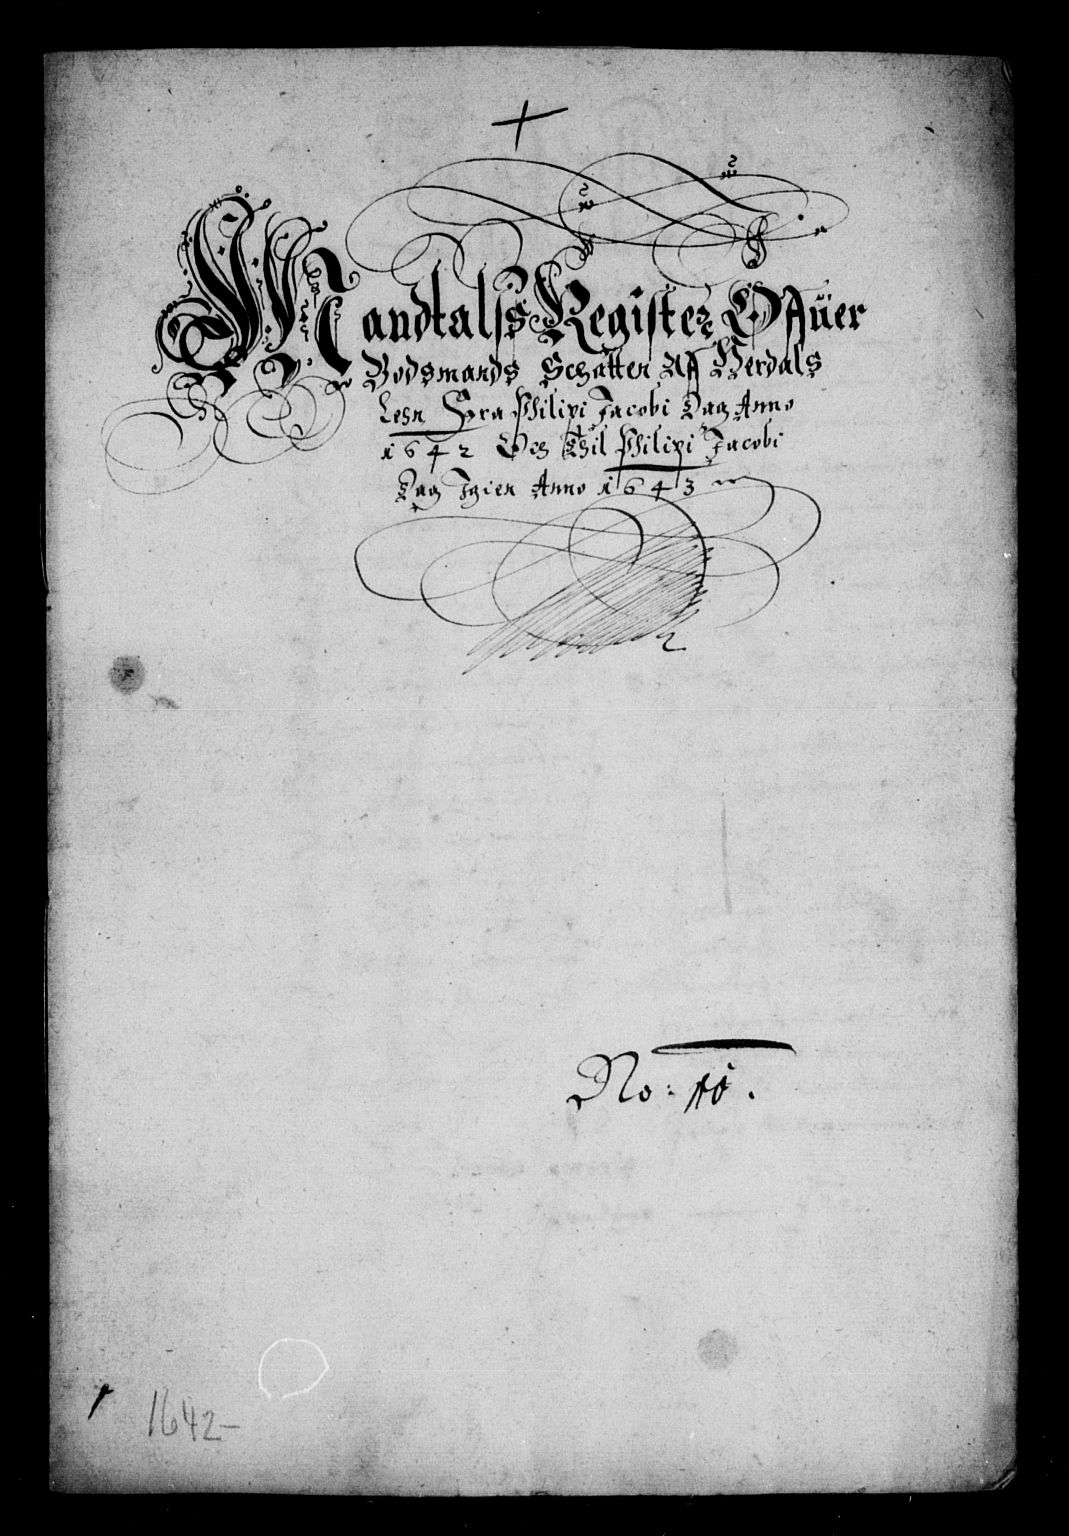 Mandtalss Register Offuer
Bodsmands Schatten Aff Verdals
Lehn Fra Philipi Jacobi Dag Anno
1642 Och Thil Philipi Jacobi
Dag Igien Anno 1643
No:
1642-